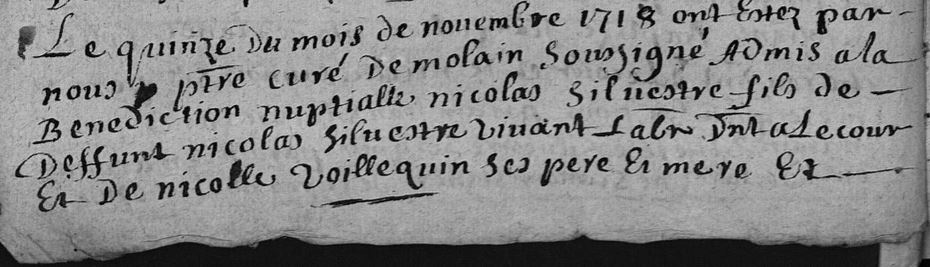 Le quinze du mois de novembre 1718 ont Estez par-
nous ptre curé Demolain Soussigné Admis a la
Benediction nuptialle nicolas Siluestre fils de -
Deffunt nicolas Siluestre vivant Labr Dnt a Lecour
Et De nicolle Voillequin Ses pere Et mere Et -